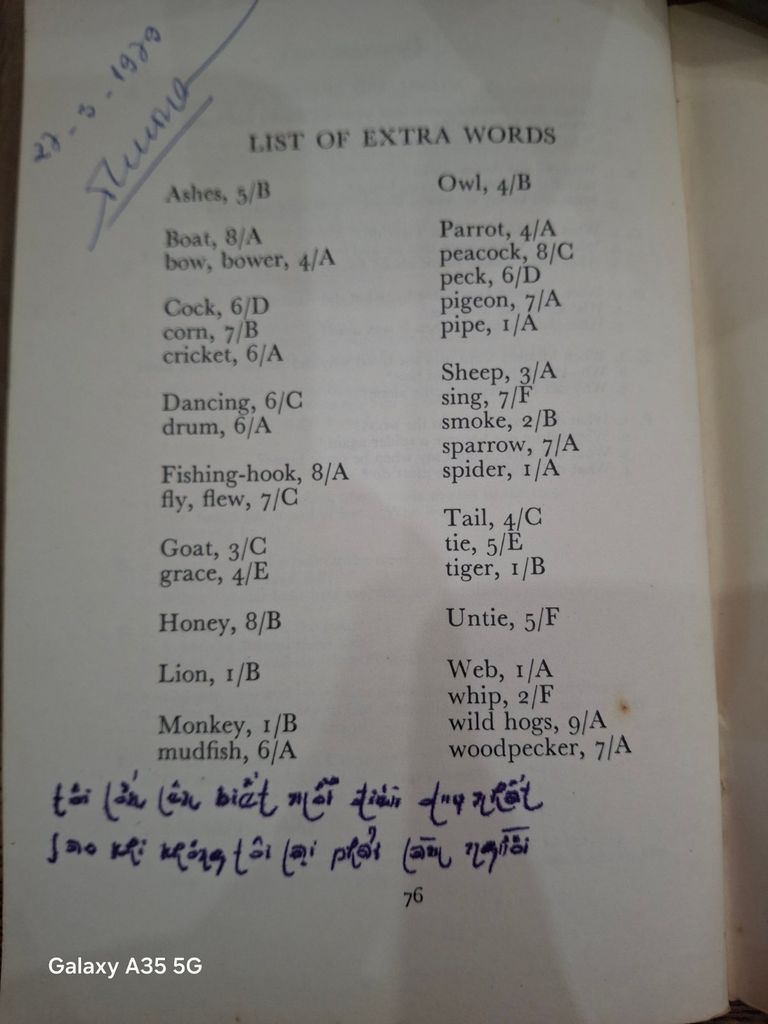 - 3 - 1979
LIST OF EXTRA WORDS
Ashes, 5/B
Boat, 8/A
bow, bower, 4/A
Cock, 6/D
corn, 7/B
cricket, 6/A
Dancing, 6/C
drum, 6/A
Fishing-hook, 8/A
fly, flew, 7/C
Goat, 3/C
grace, 4/E
Honey, 8/B
Lion, 1/B
Monkey, 1/B
mudfish, 6/A
Owl, 4/B
Parrot, 4/A
peacock, 8/C
peck, 6/D
pigeon, 7/A
pipe, 1/A
Sheep, 3/A
sing, 7/F
smoke, 2/B
sparrow, 7/A
spider, 1/A
Tail, 4/C
tie, 5/E
tiger, 1/B
Untie, 5/F
Web, 1/A
whip, 2/F
wild hogs, 9/A
woodpecker, 7/A
tôi lớn lên biết mỗi điều duy nhất
sao khi không tôi lại phải làm người
76
Galaxy A35 5G